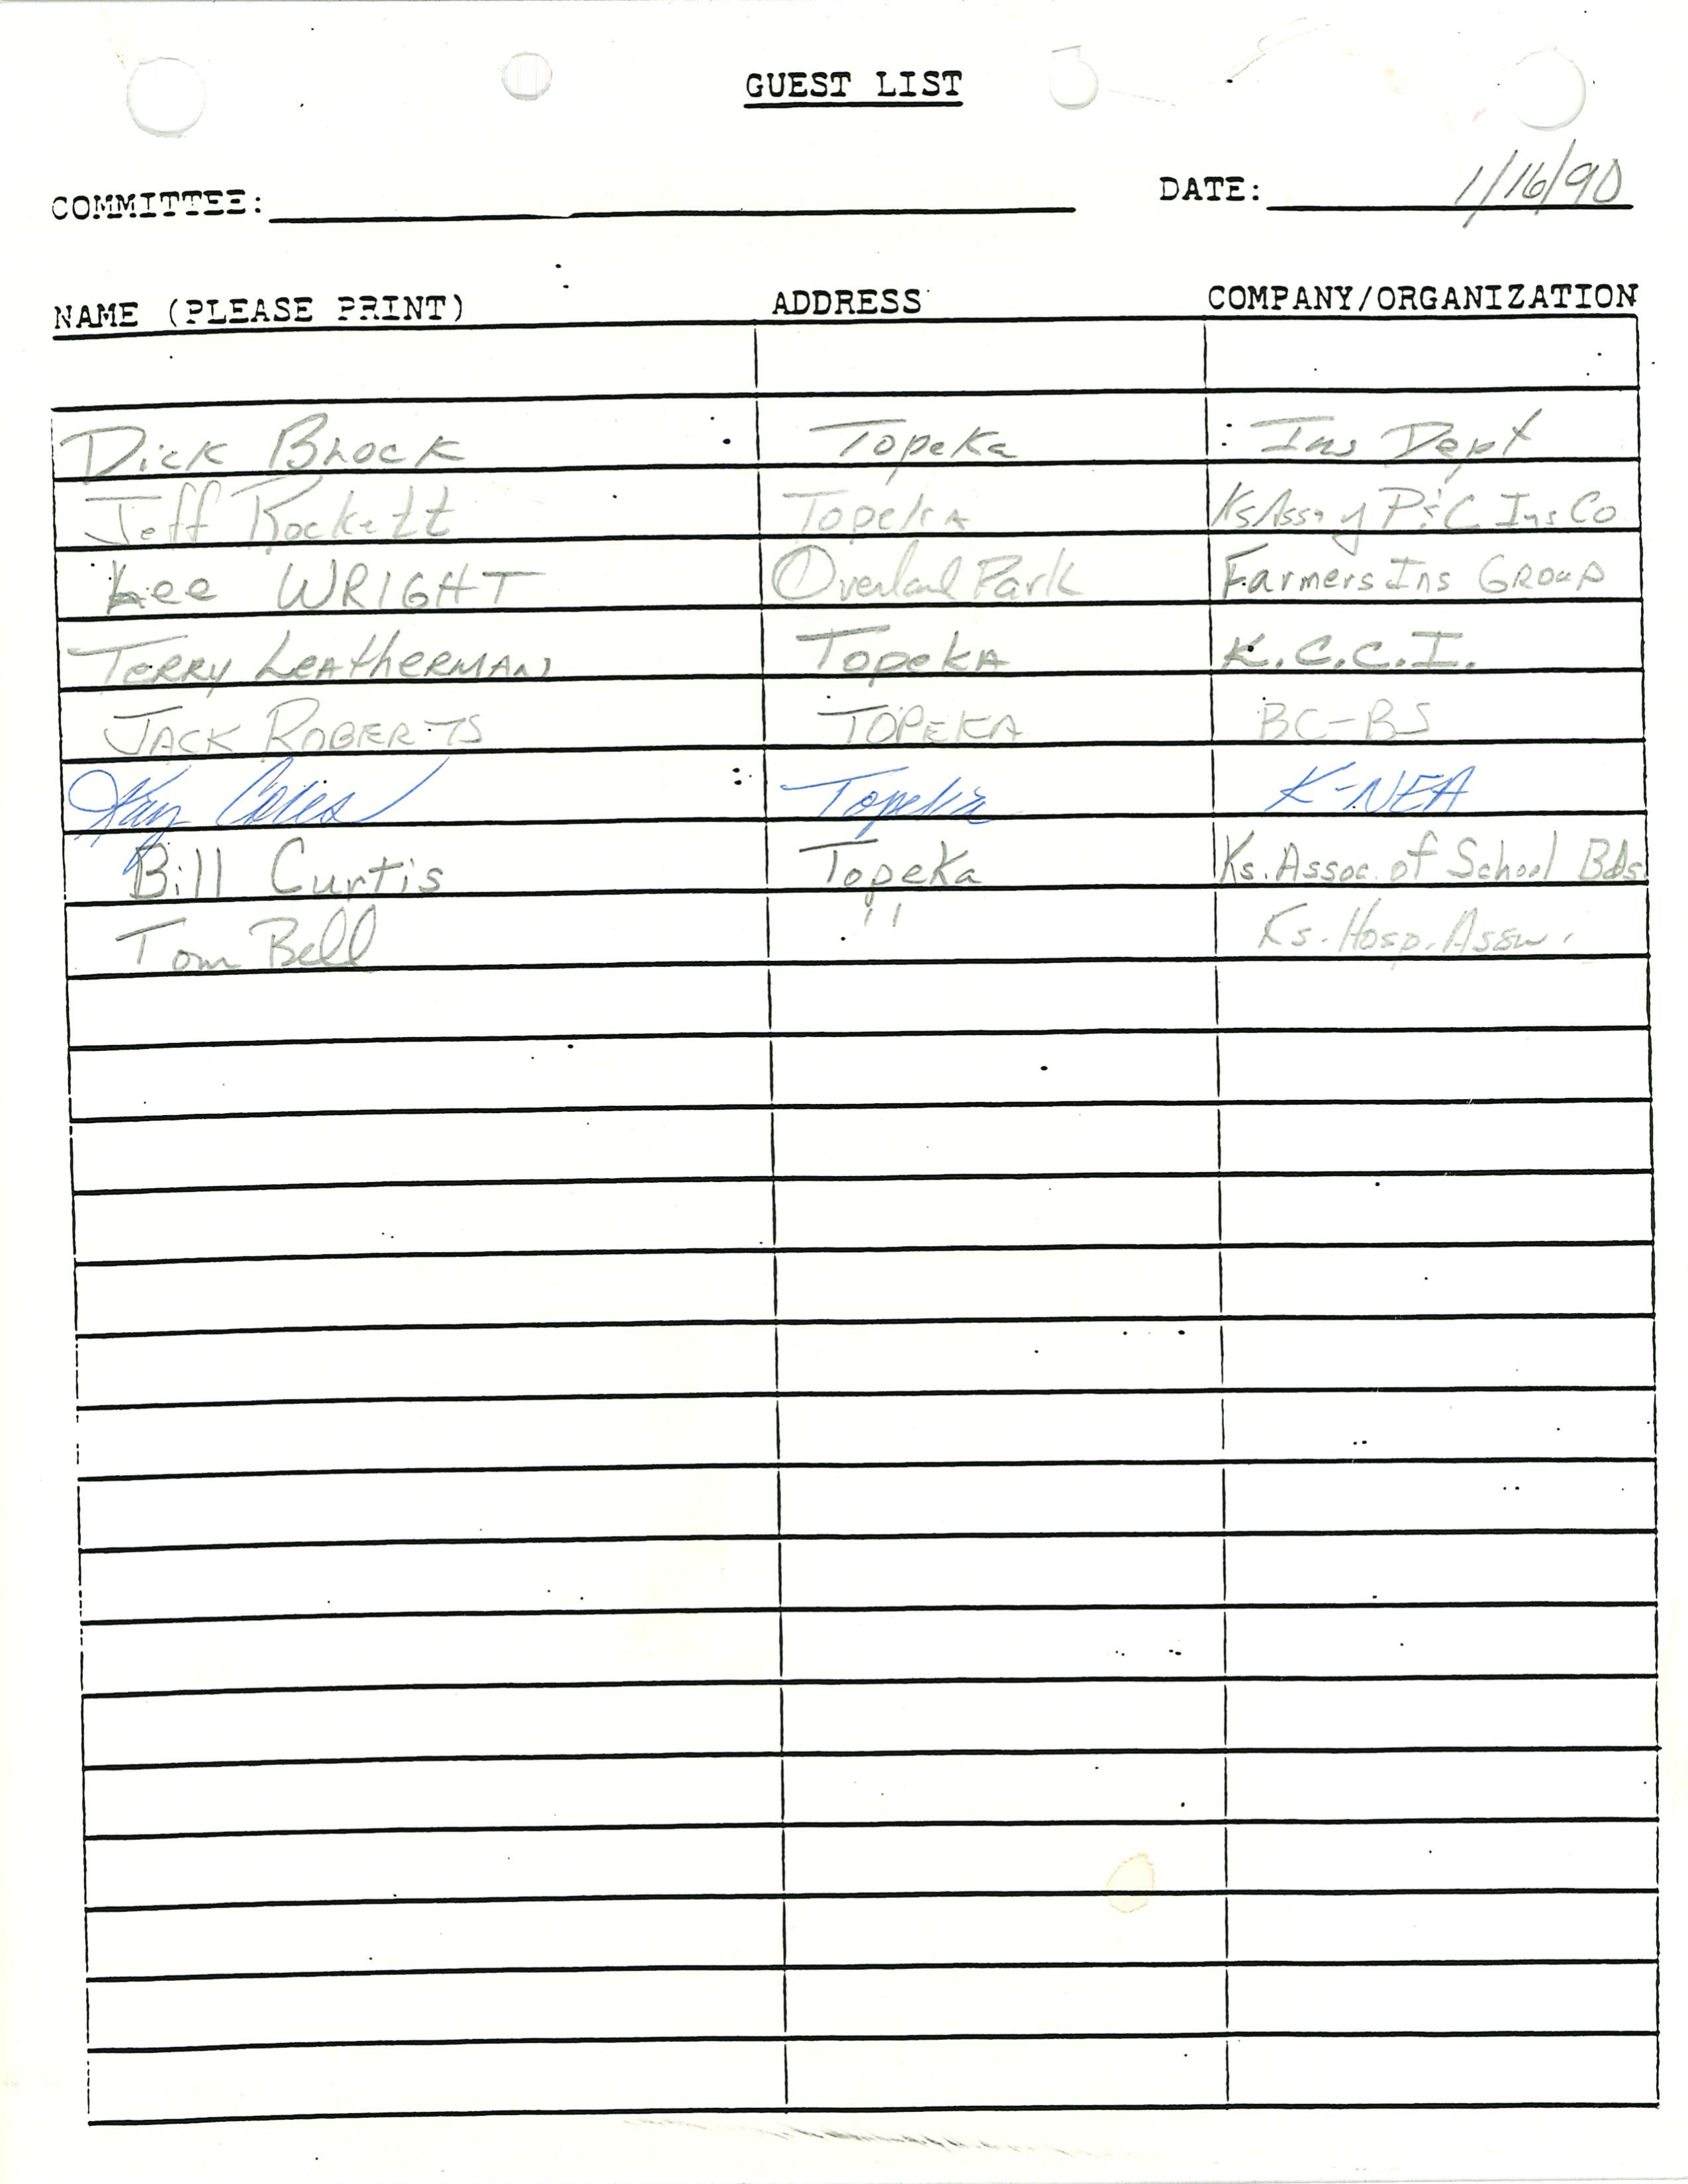 GUEST LIST
COMMITTEE: DATE: 1/16/90
NAME (PLEASE PRINT) ADDRESS COMPANY/ORGANIZATION
Dick Brock Topeka Ins Dept
Jeff Rockett Topeka Ks Assn of P&C Ins Co
Lee WRIGHT Overland Park Farmers Ins GROUP
Terry Leatherman Topeka K.C.C.I.
JACK ROBERTS TOPEKA BC-BS
Kay Coles Topeka K-NEA
Bill Curtis Topeka Ks. Assoc. of School Bds.
Tom Bell " Ks. Hosp. Assn.